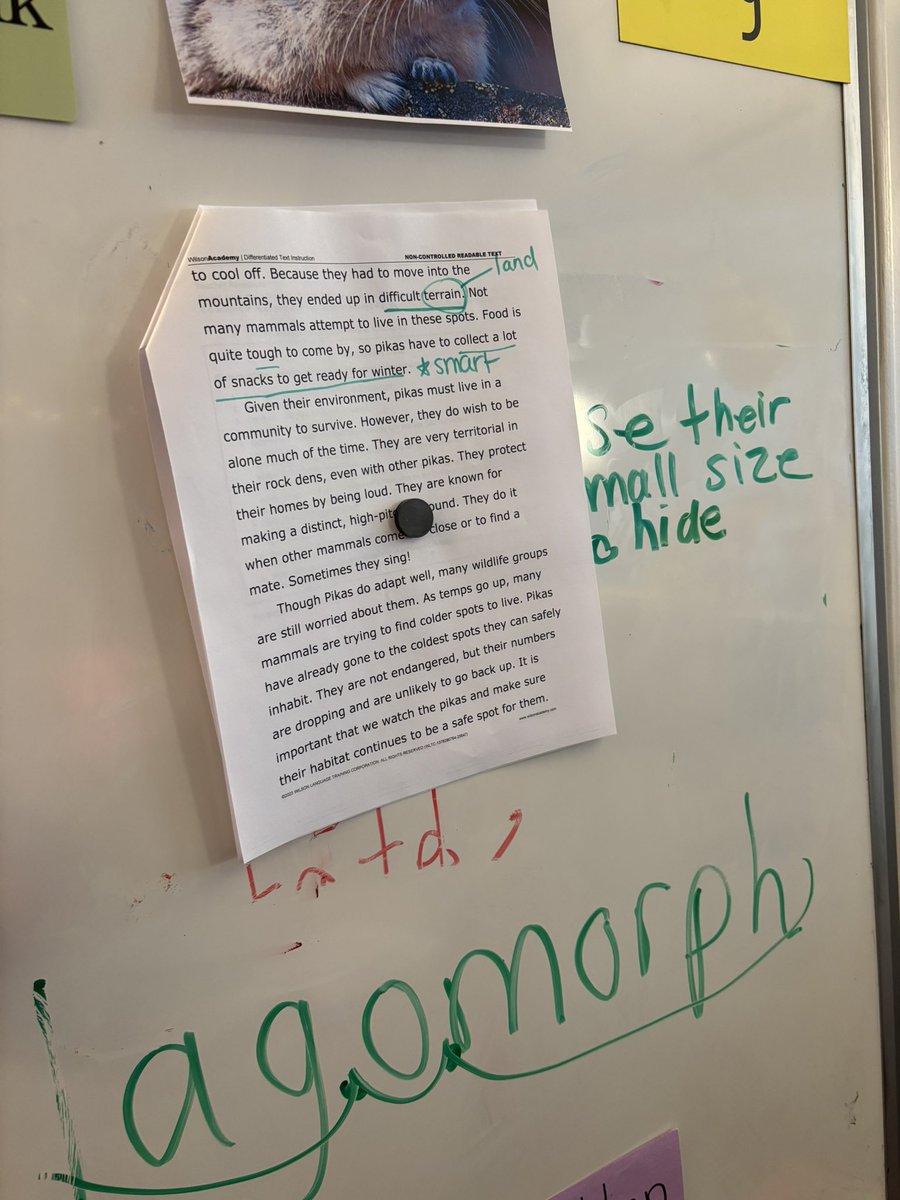 WilsonAcademy | Differentiated Text Instruction NON-CONTROLLED READABLE TEXT
to cool off. Because they had to move into the
land
mountains, they ended up in difficult terrain. Not
many mammals attempt to live in these spots. Food is
quite tough to come by, so pikas have to collect a lot
of snacks to get ready for winter. *smart
Given their environment, pikas must live in a
community to survive. However, they do wish to be
alone much of the time. They are very territorial in
their rock dens, even with other pikas. They protect
their homes by being loud. They are known for
making a distinct, ound. They do it
when other mammals come close or to find a
mate. Sometimes they sing!
Though Pikas do adapt well, many wildlife groups
are still worried about them. As temps go up, many
mammals are trying to find colder spots to live. Pikas
have already gone to the coldest spots they can safely
inhabit. They are not endangered, but their numbers
are dropping and are unlikely to go back up. It is
important that we watch the pikas and make sure
their habitat continues to be a safe spot for them.
www.wilsonacademy.com
se their
mall size
hide
Lagomorph